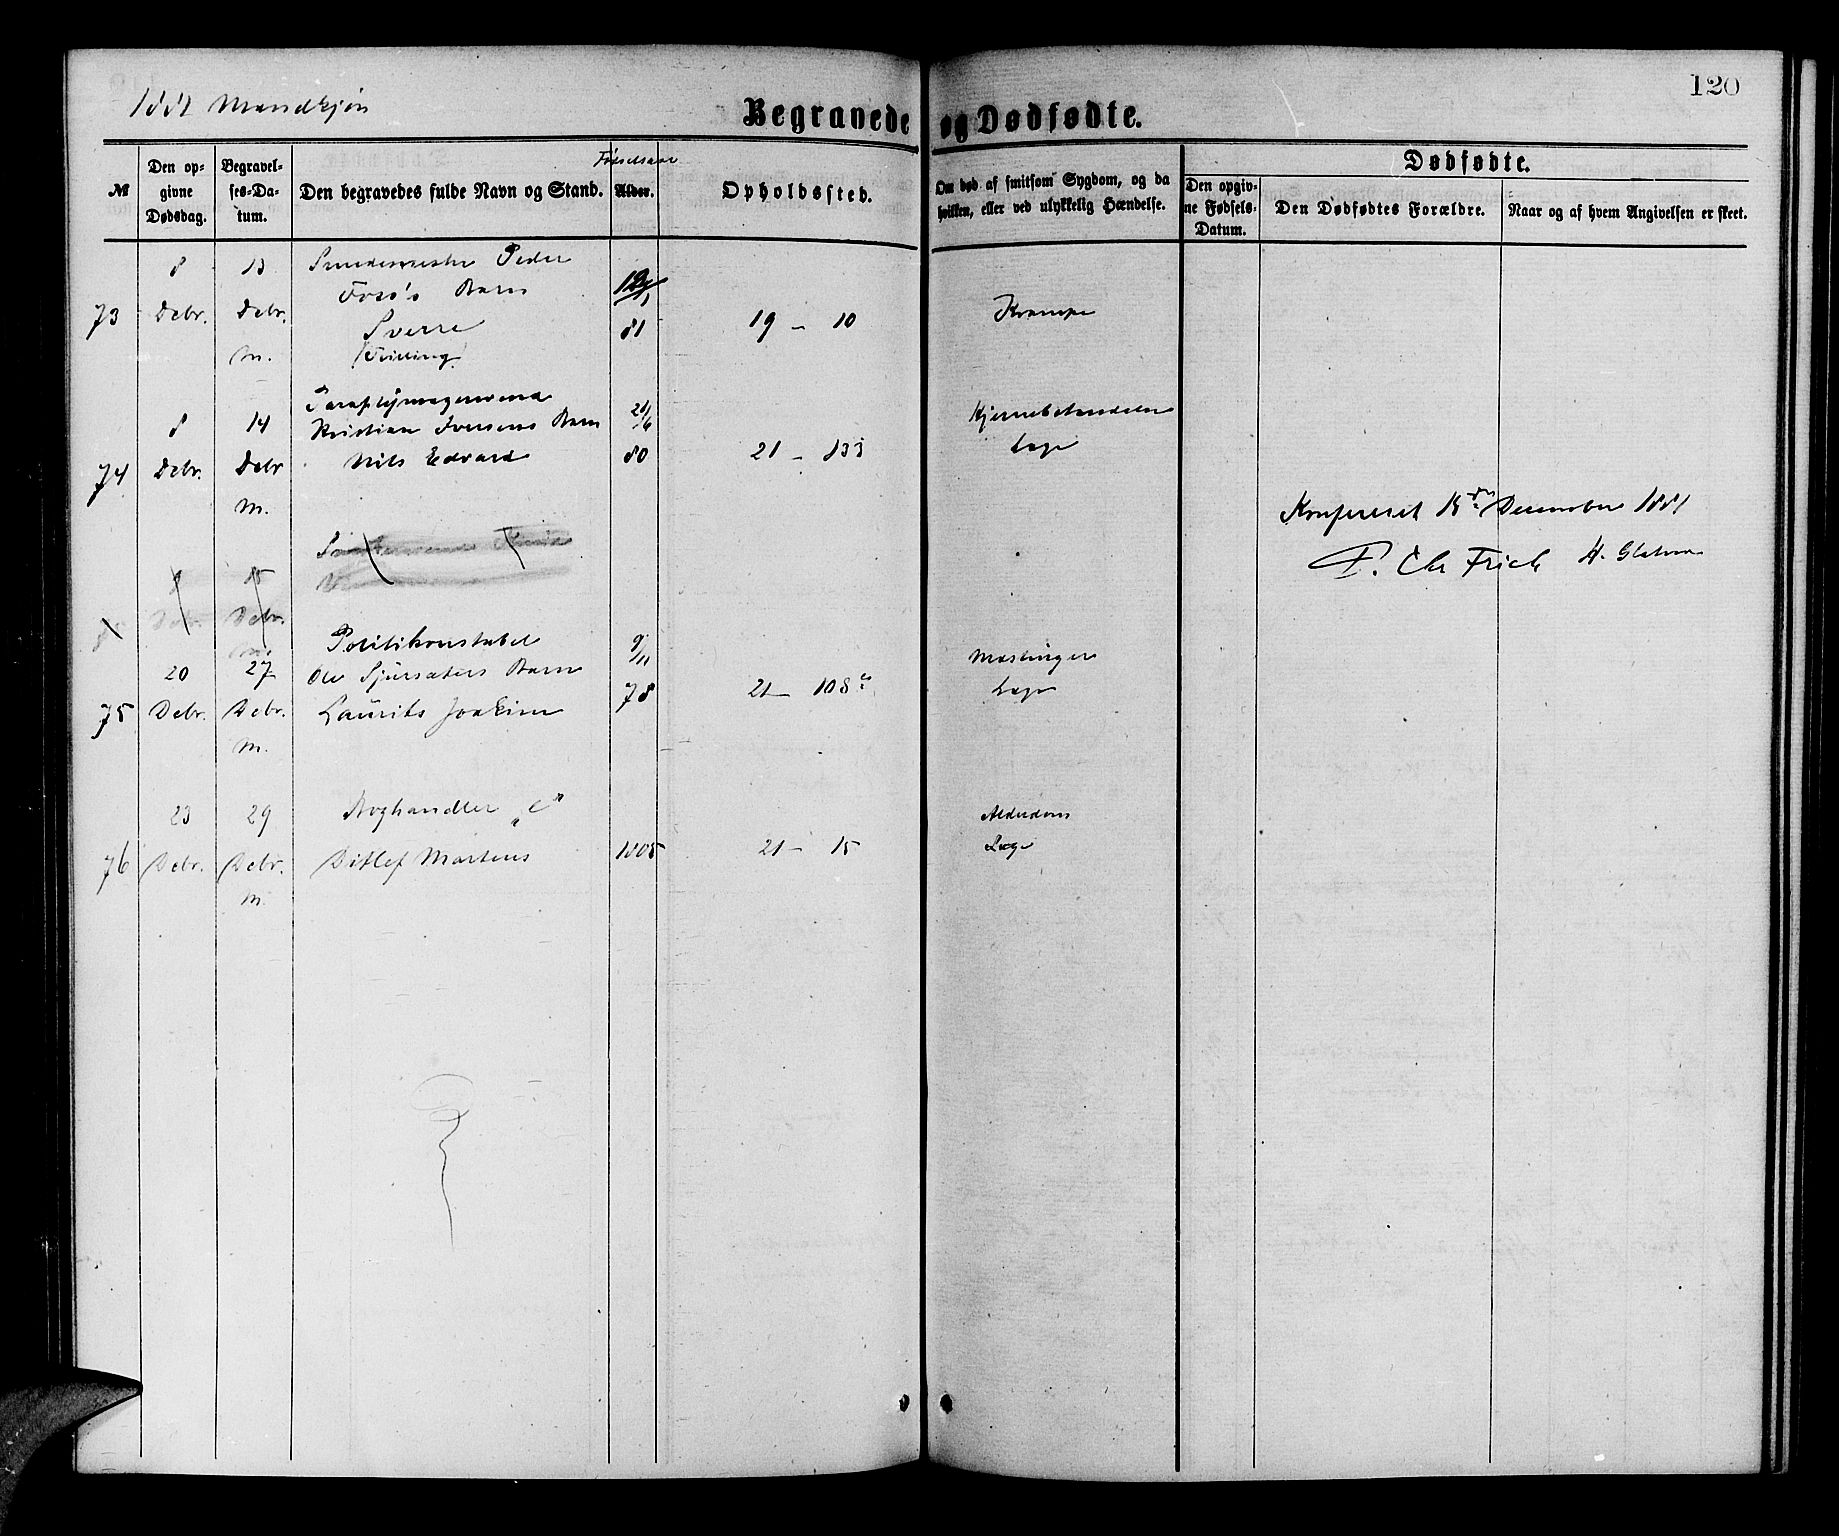 1881 Mandkjøn
120
Begravede og Dødfødte.
№
Den opgivne Dødsdag.
Begravelses-Datum.
Den begravedes fulde Navn og Stand.
Fødselsaar
Alder.
Opholdssted.
Om død af smitsom Sygdom, og da hvilken, eller ved ulykkelig Hændelse.
Dødfødte.
Den opgivne Fødsels-Datum.
Den Dødfødtes Forældre.
Naar og af hvem Angivelsen er skeet.
8 13 Smedemester Peder
Foss's Barn
73 Debr. Debr. Sverre 81 19 – 10 Krampe
m. (Tvilling)
Paraplymagersvend
8 14 Kristian Iversens Barn 21/6 Hjernebetændelse
74 Debr. Debr Nils Edvard 80 21 – 133 Læge
m.
Konfereret 15de December 1881
F. Chr Frich H. Glatved
15
Debr.
Politikonstabel 9/11
20 27 Ole Sjursæters Barn Mæslinger
75 Debr. Debr. Laurits Joakim 78 21 – 108 Læge
m.
23 29 Boghandler „e" Alderdom
76 Debr. Debr. Ditlef Martens 1805 21 – 15 Læge
m.